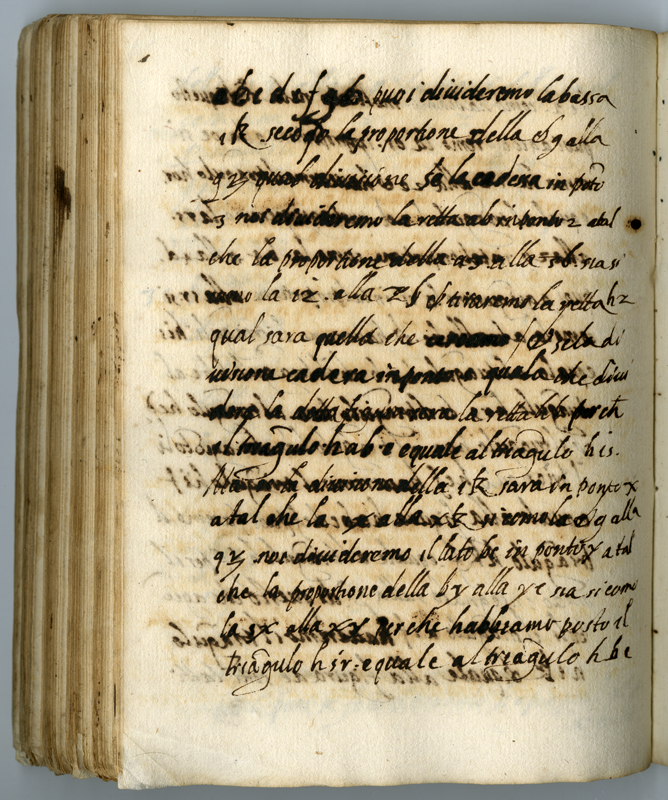 a b e d a f g b puoi divideremo la bassa
i k secōdo la proportione della ef g alla
g 23 qual divisione se la cadera in pōto
3 noi divideremo la retta ab in ponto 2 atal
che la proportione della a2 alla 2b sia si
como la iz alla zk et tiraremo la retta h2
qual sara quella che cercamo se la di
visione cadera in ponto s quala che divi
dera la detta figura sera la retta hb perch
el triāgulo hab e equale al triāgulo his.
Ma se la divisione della ik sara in ponto x
a tal che la ix alla xk si como la ef g alla
g 23 noi divideremo il lato be in ponto y a tal
che la proportione della by alla ye sia si como
la sx alla xr perche habbiamo posto il
triāgulo hsr equale al triāgulo hbe